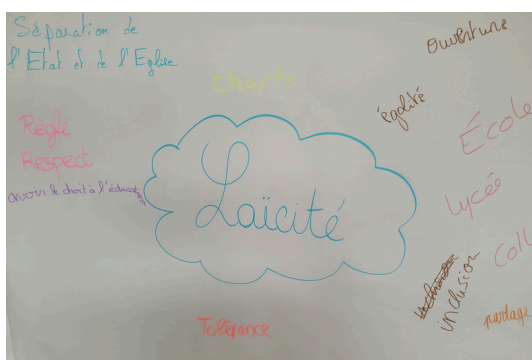 Séparation de
l'Etat et de l'Eglise
Ouverture
charte
égalité
École
Règle
Respect
avoir le droit à l'éducation
Laïcité
Lycée
Coll
inclusion
partage
Tolérance